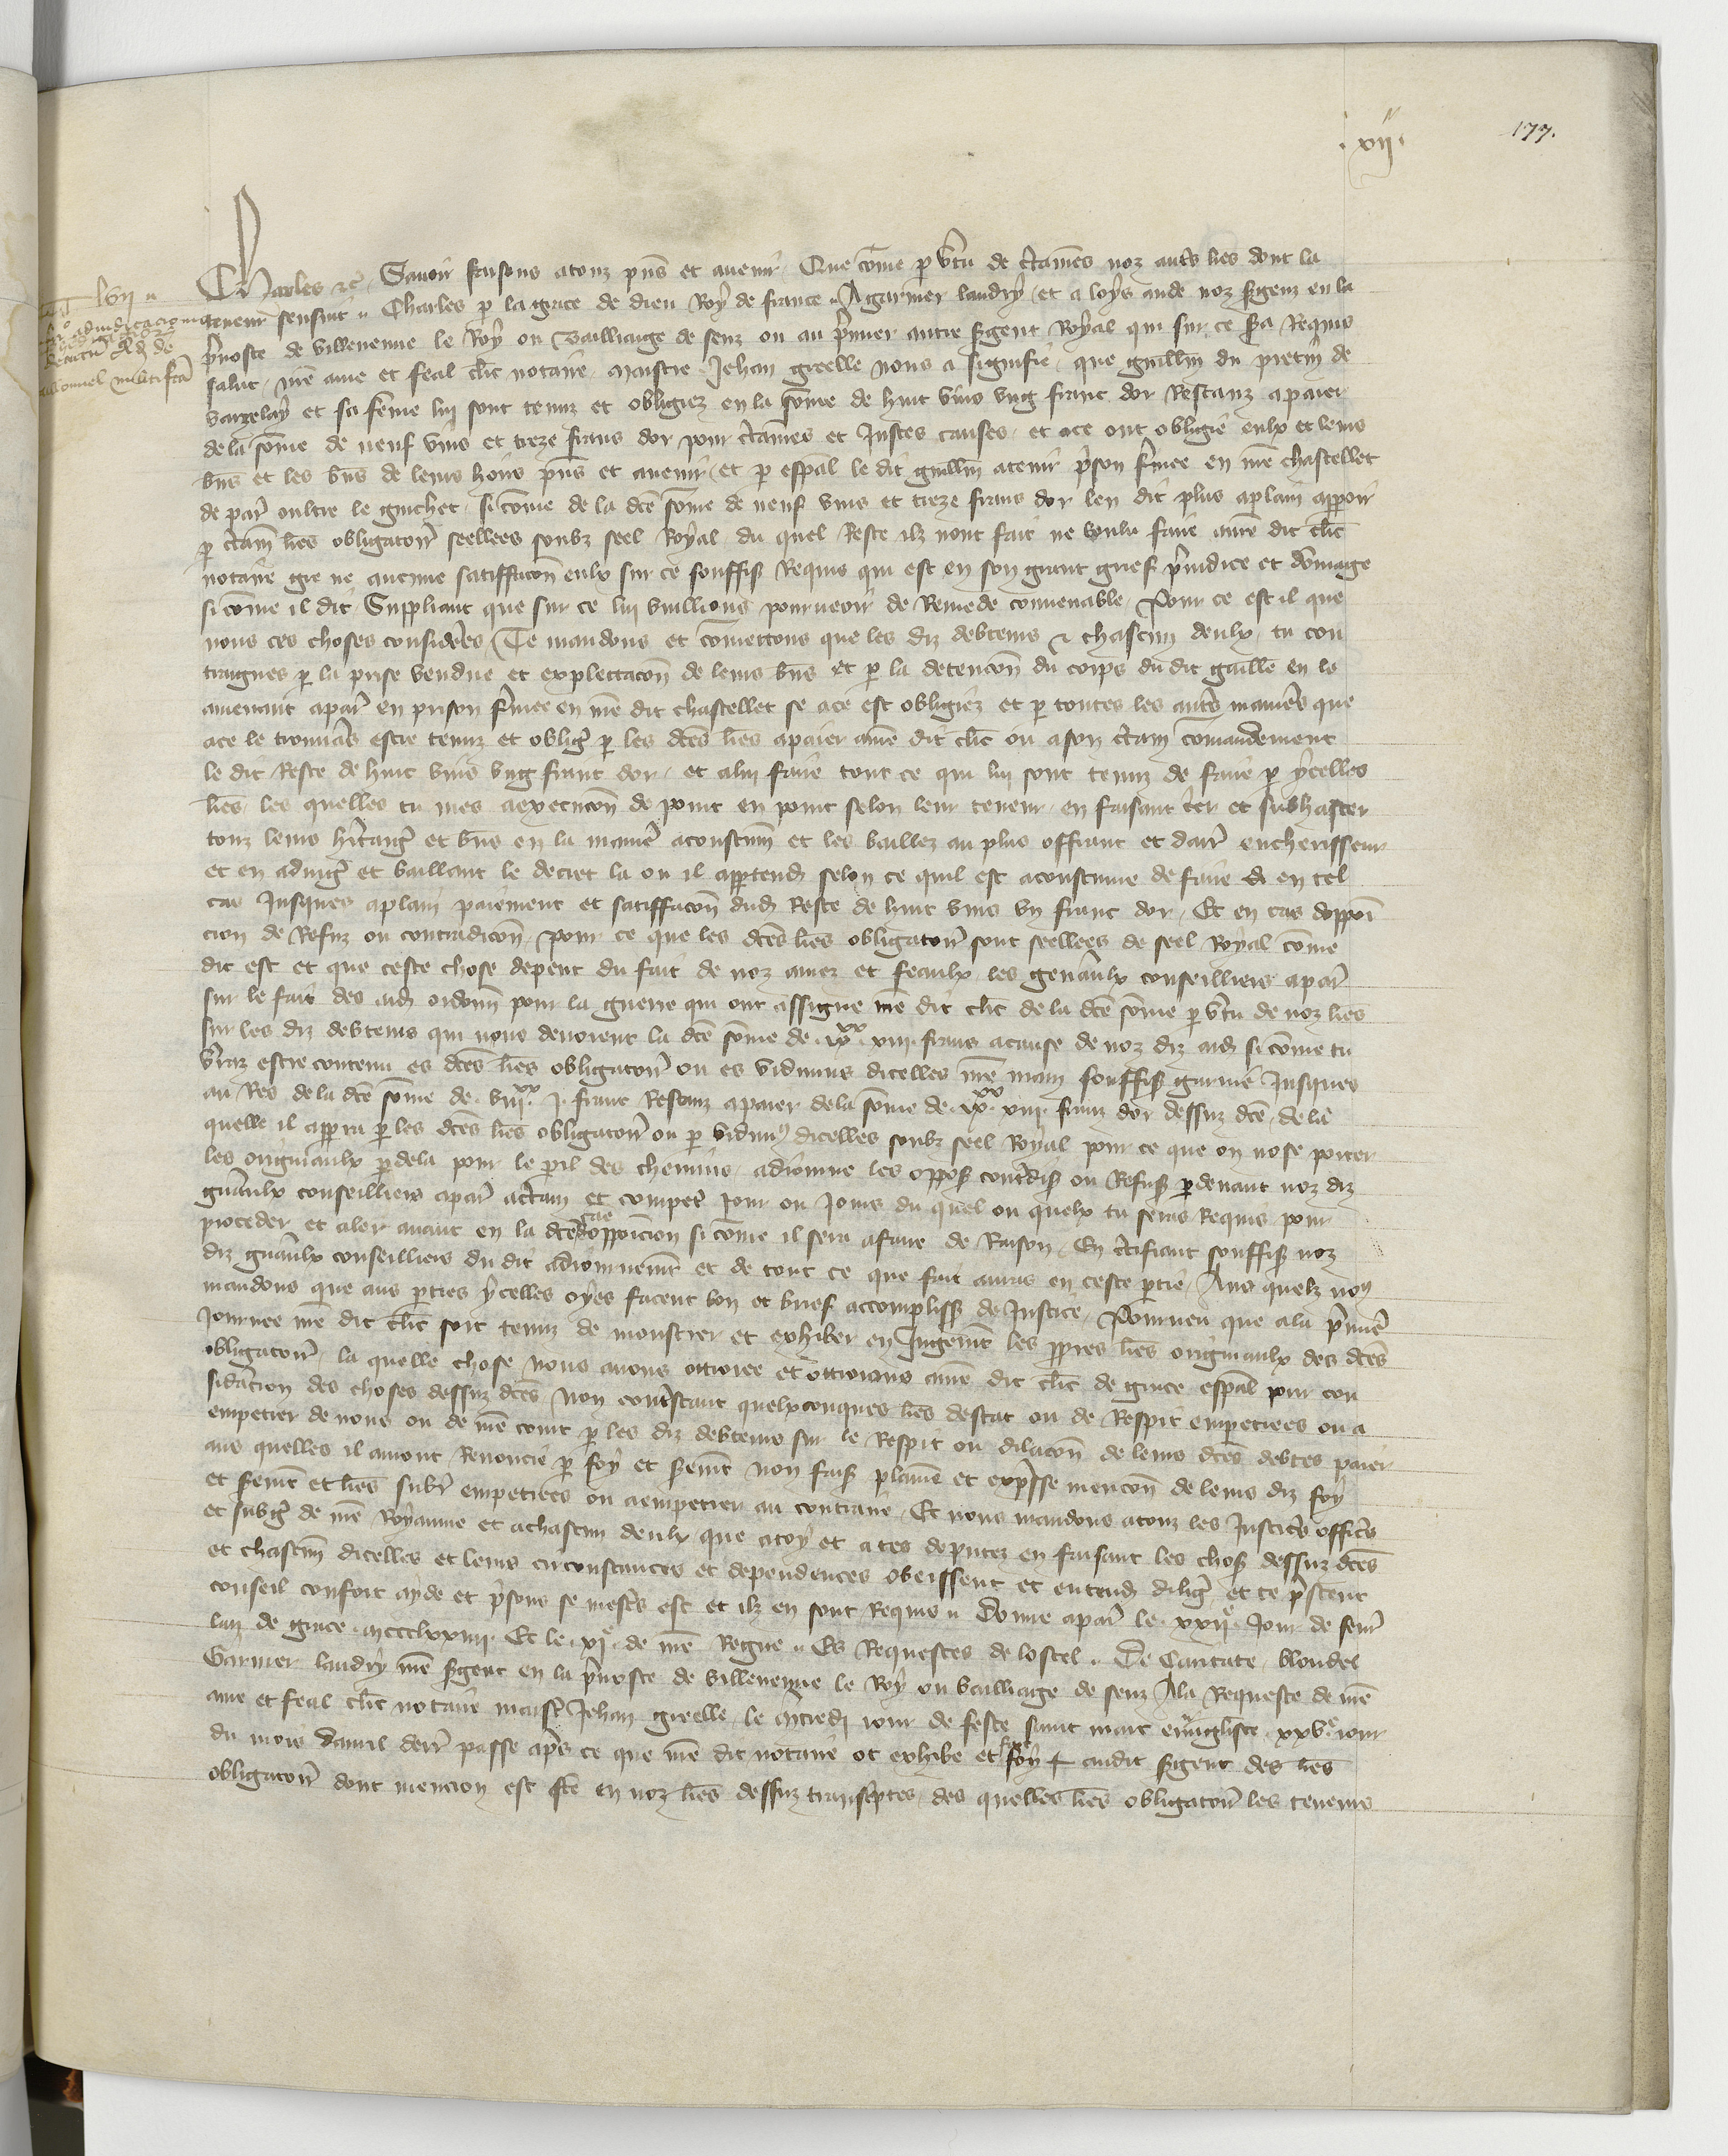 177.
. xii .
lvii
Charles etc. Savoir faisons a touz p̃ns et avenir. Que cõme p̱ vr̃tu de c̃taines noz autr̃s lr̃es dont la
teneur sensuit. Charles p̱ la grace de dieu Roy de france. A garnier laudry et a loys aude noz s̃gens en la
p̃voste de villeneuve le Roy ou Bailliauge de senz ou au p̃mier autre s̃gent Royal qui sur ce s̃ra Requis
salut. nr̃e ame et feal clerc notaire maistre Jehan greelle nous a signifie que guill̃m du
vazelay et sa fẽme lui sont tenuz et obligiez en la sõme de huit vins ung franc dor Restanz a paier
de la sõme de neuf vins et treze frans dor pour c̃taines et Justes causes et a ce ont obligie eulx et leurs
bñs et les bñs de leurs hoirs p̃ns et avenir et p̱ esp̃al le dit guill̃m a tenir p̃son f̃mee en nr̃e chastellet
de par̃ oultre le guichet si cõme de la dc̃e sõme de neuf vins et treze frans dor len dit plus a plain apparoir
p̱ c̃taines lr̃es obligatoir̃ seellees soubz seel Royal du quel Reste ilz nont fait ne voulu faire a nr̃e dit clerc
notaire gre ne aucune satiffac̃on eulx sur ce souffis̃ Requis qui est en son grant grief p̃iudice et dõmage
si cõme il dit Suppliant que sur ce lui vuillions pourveoir de Remede convenable. Pour ce est il que
nous ces choses consider̃es Te mandons et cõmettons que les diz debteurs et chascun deulx tu con
traignes p̱ la prise vendue et explectac̃on de leurs bñs et p̱ la detenc̃on du corps du dit guill̃e en le
amenant a par̃ en prison f̃mee en nr̃e dit chastellet se a ce est obligiez et p̱ toutes les autr̃s manier̃s que
a ce le trouvar̃s estre tenuz et oblig̃ p̱ les dc̃es lr̃es a paier a nr̃e dit clerc ou a son c̃tain cõmandement
le dit Reste de huit vins ung franc dor et a lui faire tout ce qui lui sont tenuz de faire p̱ ycelles
lr̃es les quelles tu mes a execuc̃on de point en point selon leur teneur en faisant c̃ier et subhaster
touz leurs hr̃itaig̃ et bñs en la manier̃ acoustum̃ et les baillez au plus offrant et darr̃ encherisseur
et en adiug̃ et baillant le decret la ou il appartend̃ selon ce quil est acoustume de faire en tel
cas Jusques a plain paiement et satiffac̃on dud̃ Reste de huit vins un franc dor. Et en cas doppoi
cion de Refuz ou contradic̃on pour ce que les dc̃es lr̃es obligatoir̃ sont seellees de seel Royal cõme
dit est et que ceste chose depent du fait de noz amez et feaulx les gen̾aulx conseilliers a par̃
sur le fait des aid̃ ordonñ pour la guerre qui ont assigne nr̃e dit clerc de la dc̃e sõme p̱ vr̃tu de noz lr̃es
sur les diz debteurs qui nous devoient la dc̃e sõme de .ix^xx. xiii. frans a cause de noz diz aid̃ si cõme tu
verraz estre contenu es dc̃es lr̃es obligatoir̃ ou es vidimus dicelles nr̃e main souffis̃ garnie Jusques
au Res de la dc̃e sõme de viii^xx. i. franc Restanz a paier de la sõme de .ix^xx. xiii. franz dor dessuz dc̃e de la
quelle il apparra p̱ les dc̃es lr̃es obligatoir̃ ou p̱ vidim9 dicelles soubz seel Royal pour ce que on nose porter
les originaulx p̱ dela pour le p̱il des chemins adiourne les oppos̃ contredis̃ ou Refus̃ p̱ devant noz diz
gen̾aulx conseilliers a par̃ a c̃tain et compet̃ jour ou jours du quel ou quelx tu seras Requis pour
proceder et aler avant en la dc̃e cause doppoicion si cõme il sera a faire de Raison. En c̃tifiant souffis̃ noz
diz gen̾aulx conseilliers du dit adiournem̃t et de tout ce que fait auras en ceste p̱tie. Aus quelz nous
mandons que aus p̱ties ycelles oyes facent bon et brief accompliss̃ de Justice. Pourveu que a la p̃mier̃
Journee nr̃e dit clerc soit tenuz de monstrer et exhiber en Jugem̃t les propres lr̃es originaulx des dc̃es
obligatoir̃ la quelle chose nous avons ottroiee et ottroions a nr̃e dit clerc de grace esp̃al pour con
siderac̃ion des choses dessuz dc̃es Non contrestant quelxconques lr̃es destat ou de Respit empetrees ou a
empetrer de nous ou de nr̃e court p̱ les diz debteurs sur le Respit ou dilac̃on de leurs dc̃es debtes paier
aus quelles il auront Renoncie p̱ foy et serem̃t non fais̃ plainē et exp̃sse menc̃on de leurs diz foy
et serem̃t et lr̃es subr̃ empetrees ou a empetrer au contraire. Et nous mandons a touz les Justicr̃s officr̃s
et subg̃ de nr̃e Royaume et a chascun deulx que a toy et a tes deputez en faisant les chos̃ dessuz dc̃es
et chascune dicelles et leurs circonstances et dependences obeissent et entend̃ dilig̃ et te p̃stent
conseil confort ayde et p̃sons se mestr̃s est et ilz en sont Requis. Donne a par̃ le xxii^e. Jour de fevr̃
lan de grace mccclxxiiii. Et le xi^e. de nr̃e Regne. Es Requestes de lostel. De Caritate. blondel
Garnier laudry nr̃e s̃gent en la p̃voste de villeneuve le Roy ou bailliage de senz A la Requeste de nr̃e
ame et feal clerc notaire maistr̃ Jehan greelle le m̃credi jour de feste saint marc euvangliste xxv^e. jour
du mois davril derr̃ passe apr̃s ce que nr̃e dit notaire ot exhibe et foy audit s̃gent des lr̃es
obligatoir̃ dont mencion est fc̃e en noz lr̃es dessuz transcriptes des quelles lr̃es obligatoir̃ les teneurs